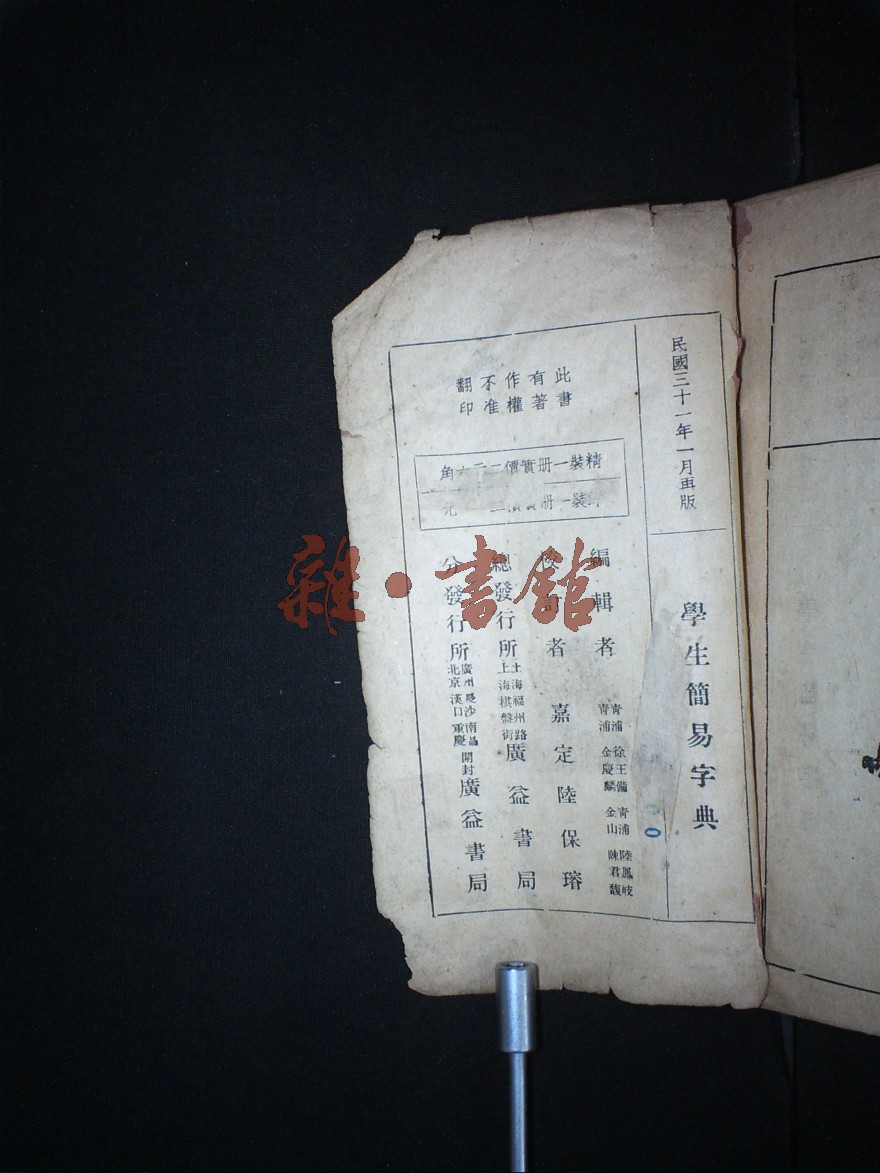 民國三十一年一月再版
學生簡易字典
此書
有著
作權
不准
翻印
精裝一册實價
角
裝一册
編輯者
青浦 徐王備 青浦 陸鳳岐
青浦 金慶麟 金山 陳君馥
訂者 嘉定陸保璿
總發行所
上海福州路
上海棋盤街
廣益書局
分發行所
廣州 長沙 南昌 開封
北京 漢口 重慶
廣益書局
雜·書館